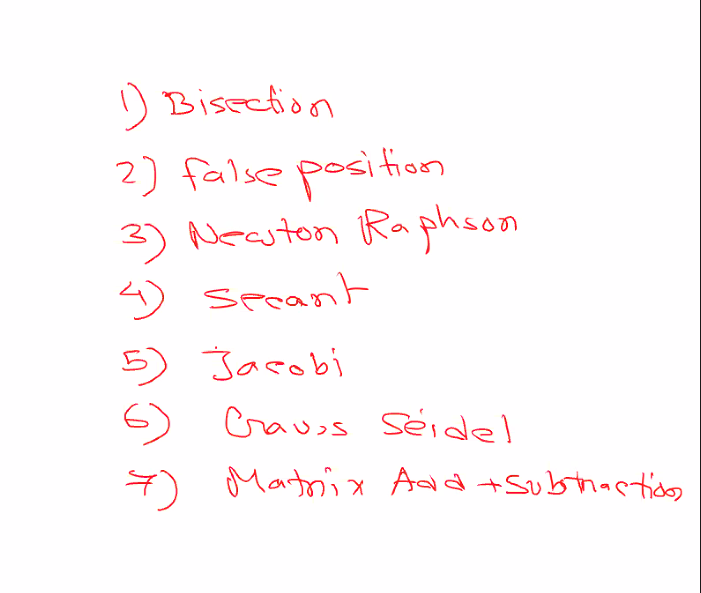 1) Bisection
2) false position
3) Newton Raphson
4) Secant
5) Jacobi
6) Gauss Seidel
7) Matrix Add + Subtraction